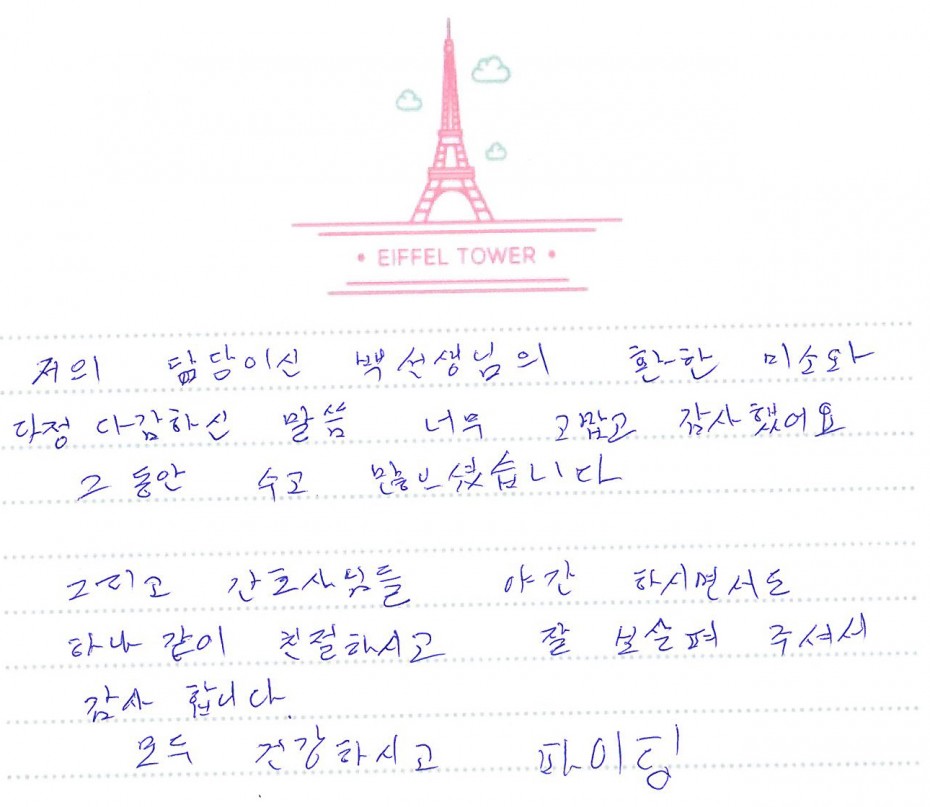 • EIFFEL TOWER •
저의 담당이신 백선생님의 환한 미소와
다정 다감하신 말씀 너무 고맙고 감사했어요
그 동안 수고 많으셨습니다
그리고 간호사님들 야간 하시면서도
하나 같이 친절하시고 잘 보살펴 주셔서
감사 합니다.
모두 건강하시고 파이팅